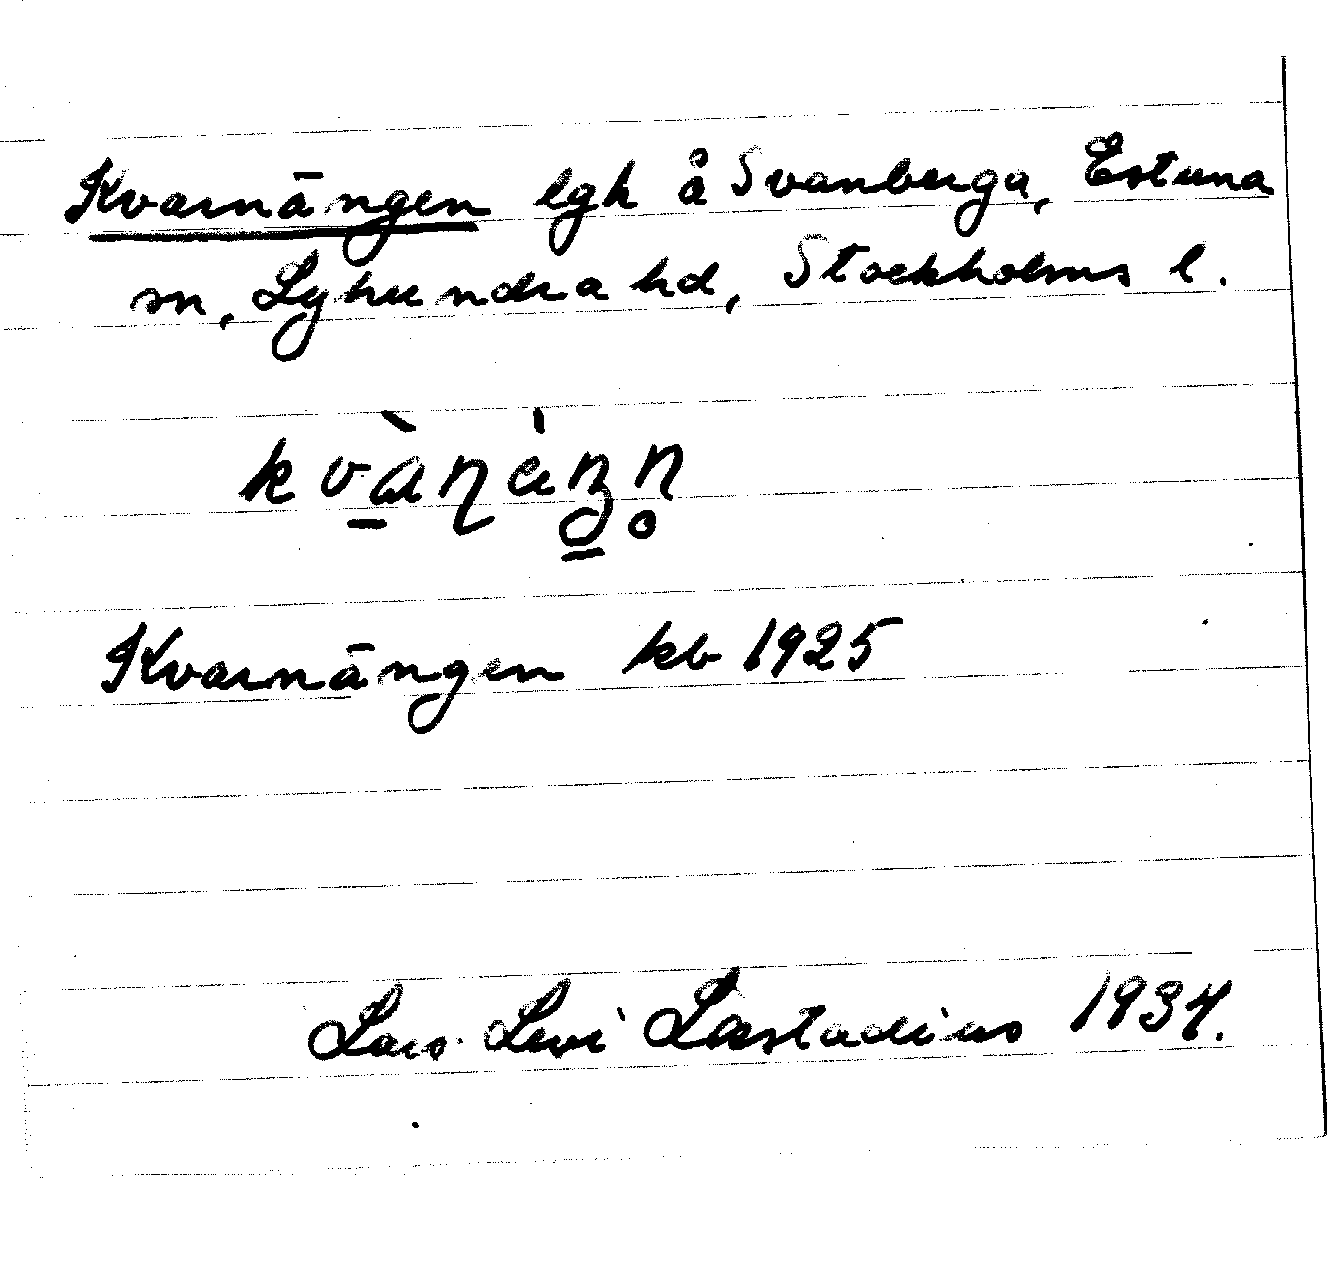 Kvarnängen lgh å Svanberga, Estuna
sn, Lyhundra hd, Stockholms l.
Kvarnängen kb 1925
Lars Levi Læstadius 1934.